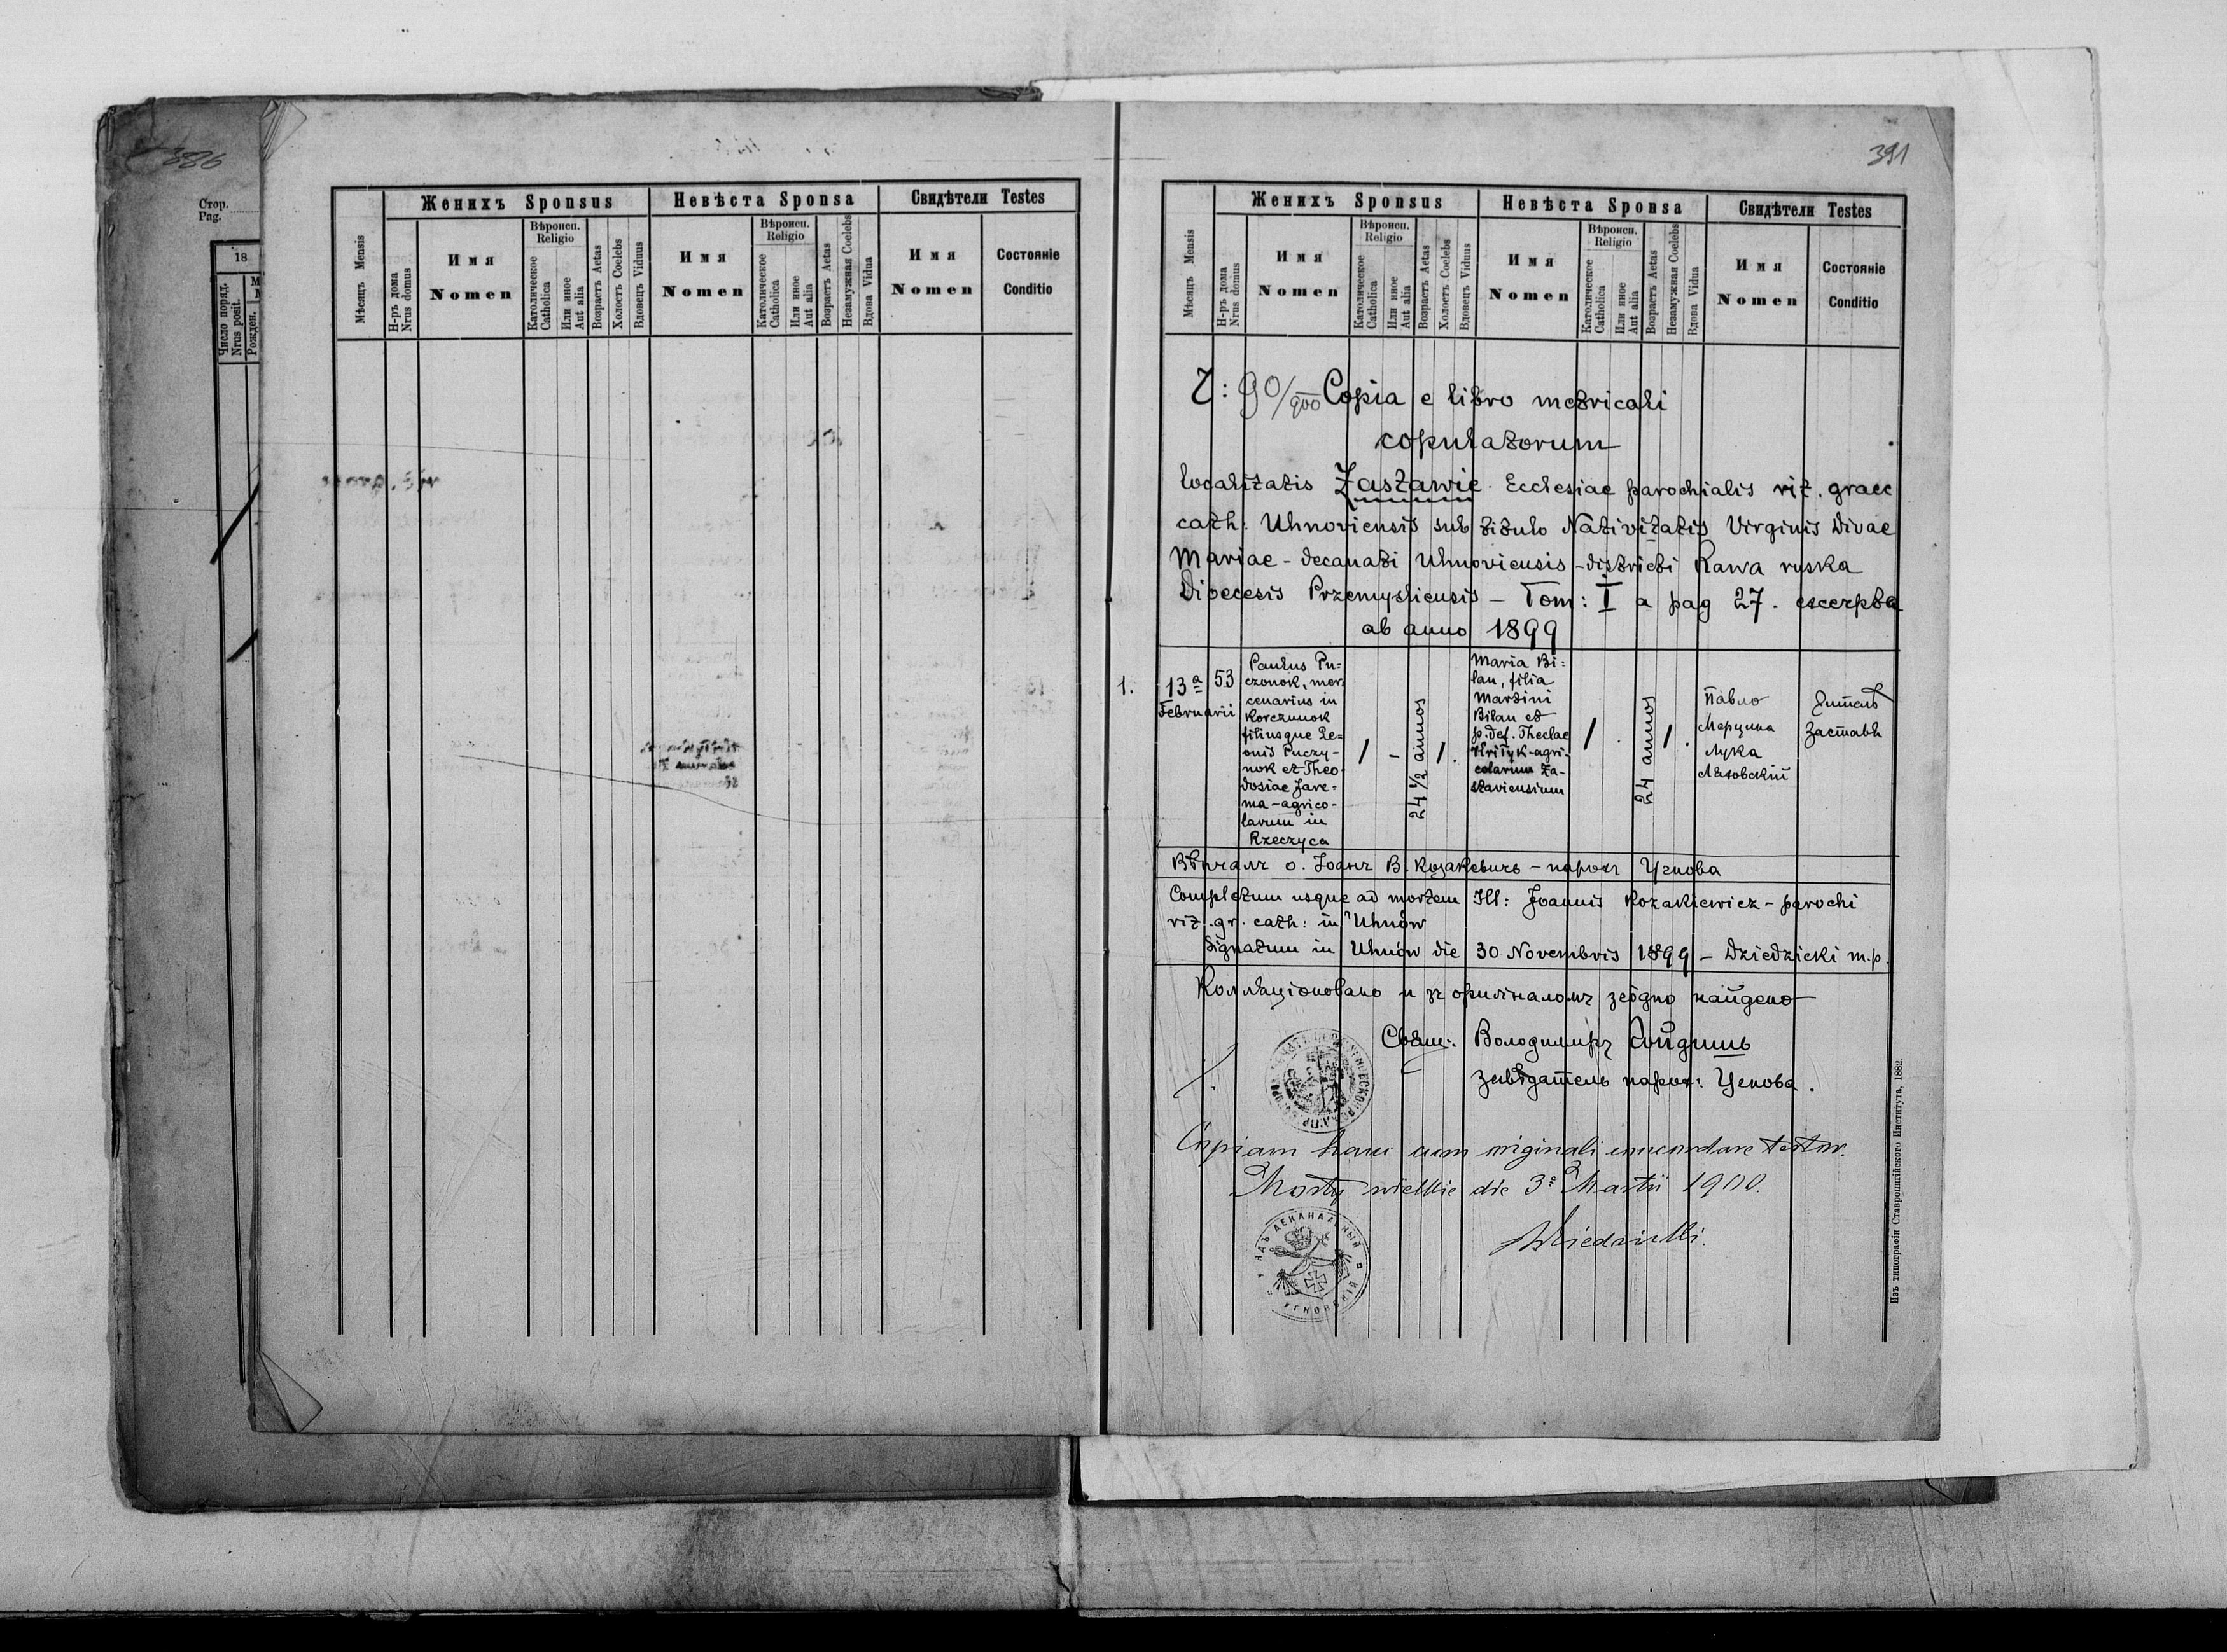 386
Стор.
Pag.
18
Число поряд.
Nrus posit.
Рожден.
Мѣсяцъ Mensis
Женихъ Sponsus
Невѣста Sponsa
Свидѣтели Testes
Н-ръ дома
Nrus domus
Имя
Nomen
Вѣроисп.
Religio
Католическое
Catholica
Или иное
Aut alia
Возрастъ Aetas
Холостъ Coelebs
Вдовецъ Viduus
Имя
Nomen
Вѣроисп.
Religio
Католическое
Catholica
Или иное
Aut alia
Возрастъ Aetas
Незамужная Coelebs
Вдова Vidua
Имя
Nomen
Состояніе
Conditio
391
Мѣсяцъ Mensis
Женихъ Sponsus
Невѣста Sponsa
Свидѣтели Testes
Н-ръ дома
Nrus domus
Имя
Nomen
Вѣроисп.
Religio
Католическое
Catholica
Или иное
Aut alia
Возрастъ Aetas
Холостъ Coelebs
Вдовецъ Viduus
Имя
Nomen
Вѣроисп.
Religio
Католическое
Catholica
Или иное
Aut alia
Возрастъ Aetas
Незамужная Coelebs
Вдова Vidua
Имя
Nomen
Состояніе
Conditio
90/900 Copia e libro metricali
copulatorum
localitatis Zastawie Ecclesiae parochialis rit. graec
cath: Uhnoviensis sub titulo Nativitatis Virginis Divae
Mariae - decanati Uhnoviensis - districti Rawa ruska
Dioecesis Przemysliensis - Tom: I a pag 27. excerpta
ab anno 1899
1.
13a
Februarii
53
Paulus Pu=
czonok, mer=
cenarius in
Korczunok
filiusque Le=
onis Puczy-
nok et Theo-
dosiae Jare=
ma - agrico-
larum in
Rzeczyca
1
-
24 1/2 annos
1.
Maria Bi=
lau, filia
Martini
Bilau et
p. def. Theclae
Hrityk - agri-
colarum Za-
staviensium
1
.
24 annos
1.
Павло
Мерцина
Лука
Лѣсовскій
Житель
Заставѣ
Вѣнчалъ о. Іоаннъ В. Козакевичъ - парохъ Угнова
Completum usque ad mortem Ill: Joannis Kozakiewicz - parochi
rit. gr. cath: in Uhnów
Signatum in Uhnów die 30 Novembris 1899 - Dziedzicki m.p.
Коллаціоновано и зъ оригіналомъ згôдно найдено
Свящ: Володимиръ
завѣдатель парох: Угнова.
Copiam hanc cum originali concordare testor.
Mosty wielkie die 3a Martii 1900.
Dziedzicki.
УРЯДЪ ДЕКАНАЛЬНЫЙ
Изъ типографіи Ставропигійского Института, 1882.